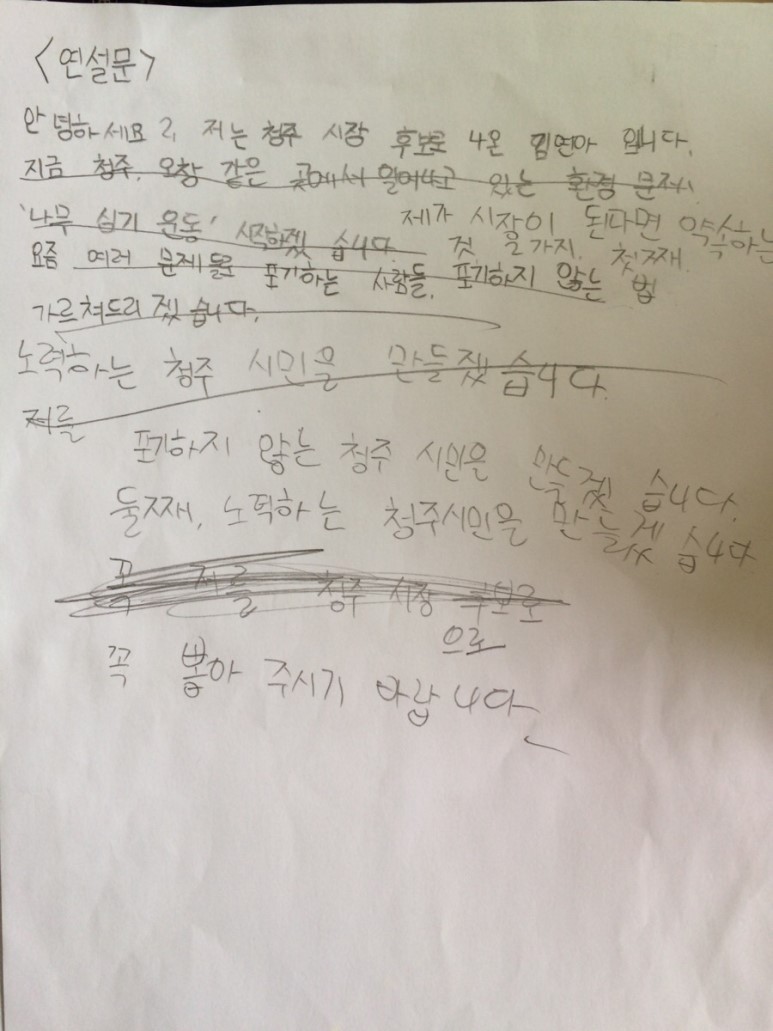 <연설문>
안녕하세요?, 저는 청주 시장 후보로 나온 김연아 입니다.
지금 청주, 오창 같은 곳에서 일어나고 있는 환경 문제,
'나무 심기 운동' 시작하겠 습니다. 제가 시장이 된다면 약속하는
것 2가지. 첫째.
요즘 여러 문제들로 포기하는 사람들, 포기하지 않는 법
가르쳐드리 겠 습니다.
노력하는 청주 시민을 만들겠 습니다.
저를
포기하지 않는 청주 시민을 만들겠 습니다.
둘째, 노력하는 청주시민을 만들겠 습니다
꼭 저를 청주 시장 후보로
으로
꼭 뽑아 주시기 바랍니다